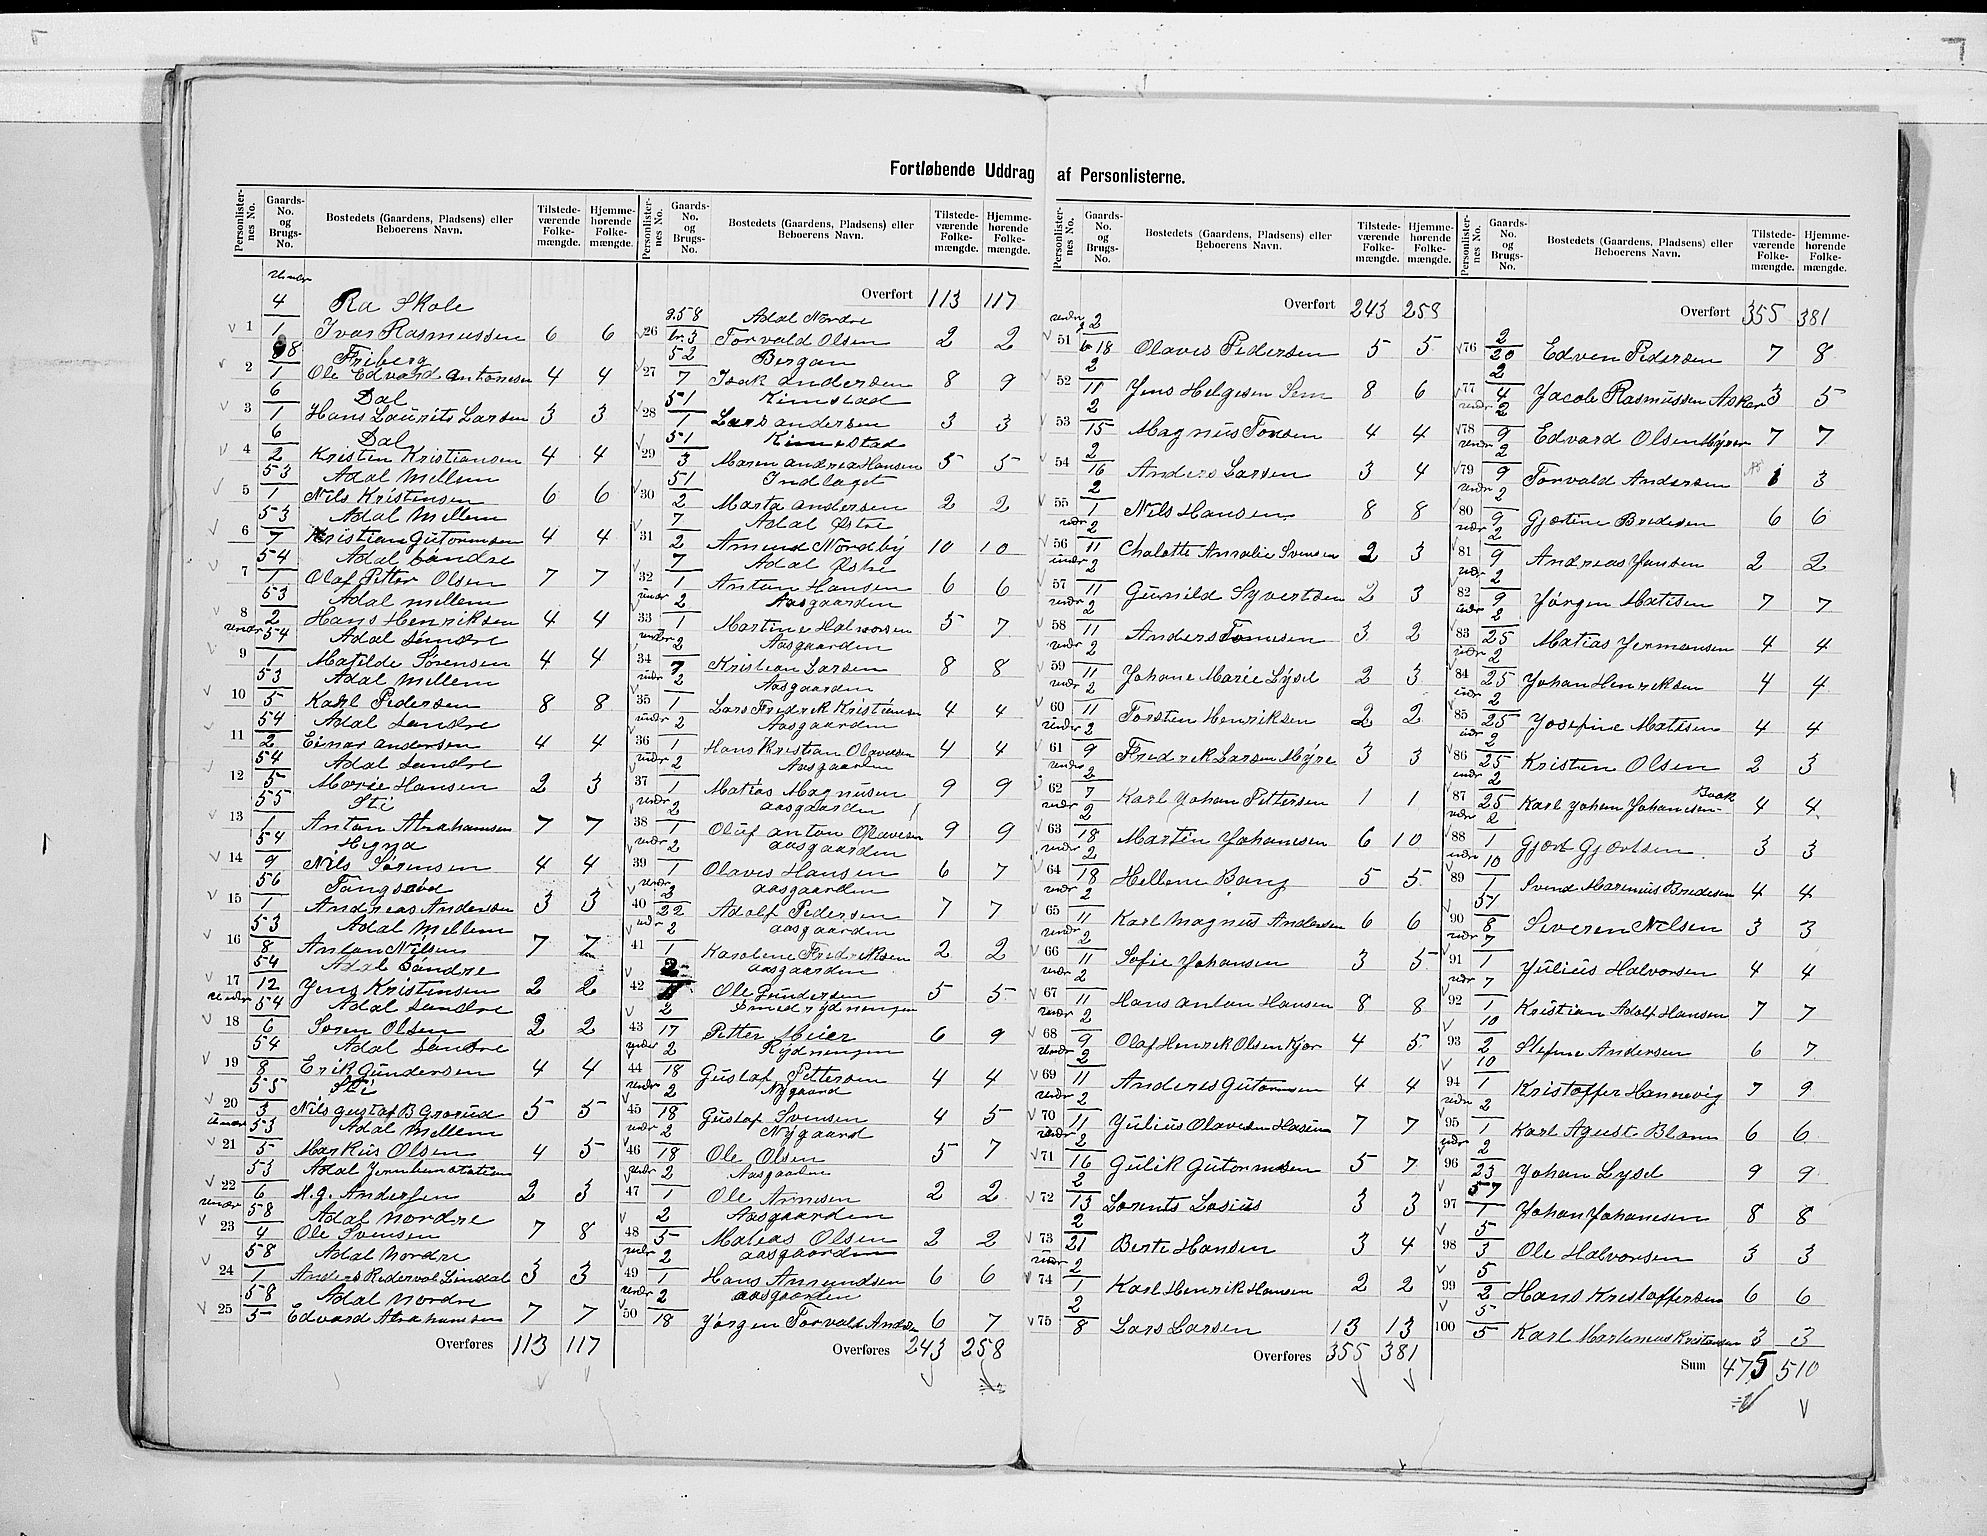 Fortløbende Uddrag af Personlisterne.
Personlister-nes No. Gaards-No. og Brugs-No. Bostedets (Gaardens, Pladsens) eller Beboerens Navn. Tilstede-værende Folke-mængde. Hjemme-hørende Folke-mængde.
4 Ra Skole
1 1 Ivar Rasmussen 6 6
8 Friberg
2 1 Ole Edvard Antonsen 4 4
6 Dal
3 1 Hans Laurits Larsen 3 3
6 Dal
4 2 Kristen Kristiansen 4 4
53 Adal Mellem
5 1 Nils Kristensen 6 6
53 Adal Mellem
6 7 Kristian Gutormsen 4 4
54 Adal Søndre
7 1 Olaf Petter Olsen 7 7
53 Adal mellem
8 2 Hans Henriksen 4 4
54 Adal Søndre
9 1 Matilde Sørensen 4 4
53 Adal Mellem
10 5 Karl Pedersen 8 8
54 Adal Søndre
11 2 Einar Andersen 4 4
54 Adal Søndre
12 5 Marie Hansen 2 3
55 Sti
13 1 Anton Abrahamsen 7 7
54
14 9 Nils Sørensen 4 4
56
15 1 Andreas Andersen 3 3
53 Adal Mellem
16 8 Anton Nilsen 7 7
54 Adal Søndre
17 12 Jens Kristensen 2 2
54 Adal Søndre
18 6 Søren Olsen 2 2
54 Adal Søndre
19 8 Erik Gundersen 4 4
55 Sti
20 3 Nils Gustaf B Grorud 5 5
53 Adal Mellem
21 5 Markus Olsen 4 5
53 Adal Jernbanestation
22 6 H. G. Andersen 2 3
58 Adal Nordre
23 4 Ole Svensen 7 8
58 Adal Nordre
24 1 Anders Lindal 3 3
58 Adal Nordre
25 5 Edvard Abrahamsen 7 7
Overføres 113 117
Personlister-nes No. Gaards-No. og Brugs-No. Bostedets (Gaardens, Pladsens) eller Beboerens Navn. Tilstede-værende Folke-mængde. Hjemme-hørende Folke-mængde.
Overført 113 117
58 Adal Nordre
26 br. 3 Torvald Olsen 2 2
52 Bergan
27 7 Isak Andersen 8 9
51 Kimstad
28 1 Lars Andersen 3 3
51 Kimestad
29 3 Maren Andrea Hansen 5 5
51 Indlaget
30 2 Marta Andersen 2 2
7 Adal Østre
31 2 Amund Nordby 10 10
7 Adal Østre
32 1 Anton Hansen 6 6
2 Aasgaarden
33 1 Martine Halvorsen 5 7
2 Aasgaarden
34 7 Kristian Larsen 8 8
2 Aasgaarden
35 1 Lars Fredrik Kristiansen 4 4
2 Aasgaarden
36 1 Hans Kristian Olavesen 4 4
2 Aasgaarden
37 1 Matias Magnusen 9 9
2 aasgaarden
38 1 Oluf Anton Olavesen 9 9
2 aasgaarden
39 1 Olaves Hansen 6 7
2 aasgaarden
40 22 Adolf Pedersen 7 7
2 aasgaarden
41 1 Karolene Fredriksen 2 2
2 aasgaarden
42 Ole Gundersen 5 5
2 Smedrydningen
43 17 Petter Meier 6 9
2 Rydningen
44 18 Gustaf Pettersen 4 4
2 Nygaard
45 18 Gustaf Svensen 4 5
2 Nygaard
46 18 Ole Olsen 5 7
2 Aasgaarden
47 1 Ole Arnesen 2 2
2 Aasgaarden
48 5 Matias Olsen 2 2
2 aasgaarden
49 1 Hans Amundsen 6 6
2 aasgaarden
50 18 Jørgen Torvald Andersen 6 7
Overføres 243 258
Personlister-nes No. Gaards-No. og Brugs-No. Bostedets (Gaardens, Pladsens) eller Beboerens Navn. Tilstede-værende Folke-mængde. Hjemme-hørende Folke-mængde.
Overført 243 258
2
51 br 18 Olaves Pedersen 5 5
2
52 11 Jens Helgesen Sem 8 6
2
53 15 Magnus Tonsen 4 4
2
54 16 Anders Larsen 3 4
2
55 1 Nils Hansen 8 8
2
56 11 Chalotte Amalie Svensen 2 3
2
57 11 Gunild Syvertsen 2 3
2
58 11 Anders Tomesen 3 2
2
59 11 Johane Marie Lysel 2 3
2
60 11 Torsten Henriksen 2 2
2
61 9 Fredrik Larsen Myre 3 3
2
62 7 Karl Johan Pettersen 1 1
2
63 18 Martin Johannesen 6 10
2
64 18 Hellene Bang 5 5
2
65 11 Karl Magnus Andersen 6 6
2
66 11 Sofie Johansen 3 5
2
67 11 Hans Anton Hansen 8 8
2
68 9 Olaf Henrik Olsen Kjær 4 5
2
69 11 Anders Gutormsen 4 4
2
70 11 Julius Olavesen Hasum 7 7
2
71 16 Gulik Gutormsen 5 7
2
72 13 Lorents Lasius 3 3
2
73 21 Berte Hansen 3 4
2
74 1 Karl Henrik Hansen 2 2
2
75 8 Lars Larsen 13 13
Overføres 355 381
Personlister-nes No. Gaards-No. og Brugs-No. Bostedets (Gaardens, Pladsens) eller Beboerens Navn. Tilstede-værende Folke-mængde. Hjemme-hørende Folke-mængde.
Overført 355 381
2
76 20 Edven Pedersen 7 8
2
77 4 Jacob Rasmussen Asker 3 5
2
78 9 Edvard Olsen Myrer 7 7
2
79 9 Torvald Andersen 1 3
2
80 9 Gjætine Bredesen 6 6
2
81 9 Andreas Jansen 2 2
2
82 9 Jørgen Matisen 7 7
2
83 25 Matias Jermansen 4 4
2
84 25 Johan Henriksen 4 4
2
85 25 Josefine Matisen 4 4
2
86 25 Kristen Olsen 2 3
2
87 25 Karl Johan Johannesen Baak 4 4
2
88 1 Gjært Gjærtsen 3 3
10
89 1 Svend Marenius Bredesen 4 4
51
90 8 Severen Nelsen 3 3
7
91 1 Julius Halvorsen 4 4
7
92 1 Kristian Adolf Hansen 7 7
10
93 2 Stefine Andersen 6 7
10
94 1 Kristoffer Hannevig 7 9
2
95 1 Karl Agust Blom 6 6
2
96 23 Johan Lysel 9 9
57
97 1 Johan Johannesen 8 8
5
98 3 Ole Halvorsen 3 3
5
99 2 Hans Kristoffersen 6 6
5
100 5 Karl Martinius Kristensen 3 3
Sum 475 510